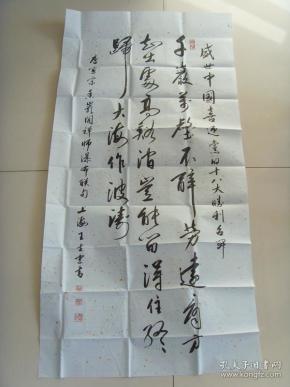 盛世中国喜迎党的十八大胜利召开
千岩万壑不辞劳远看方
知出处高溪涧岂能留得住终
归大海作波涛
唐宣宗香严闲禅师瀑布联句
上海王
书
孔夫子旧书网